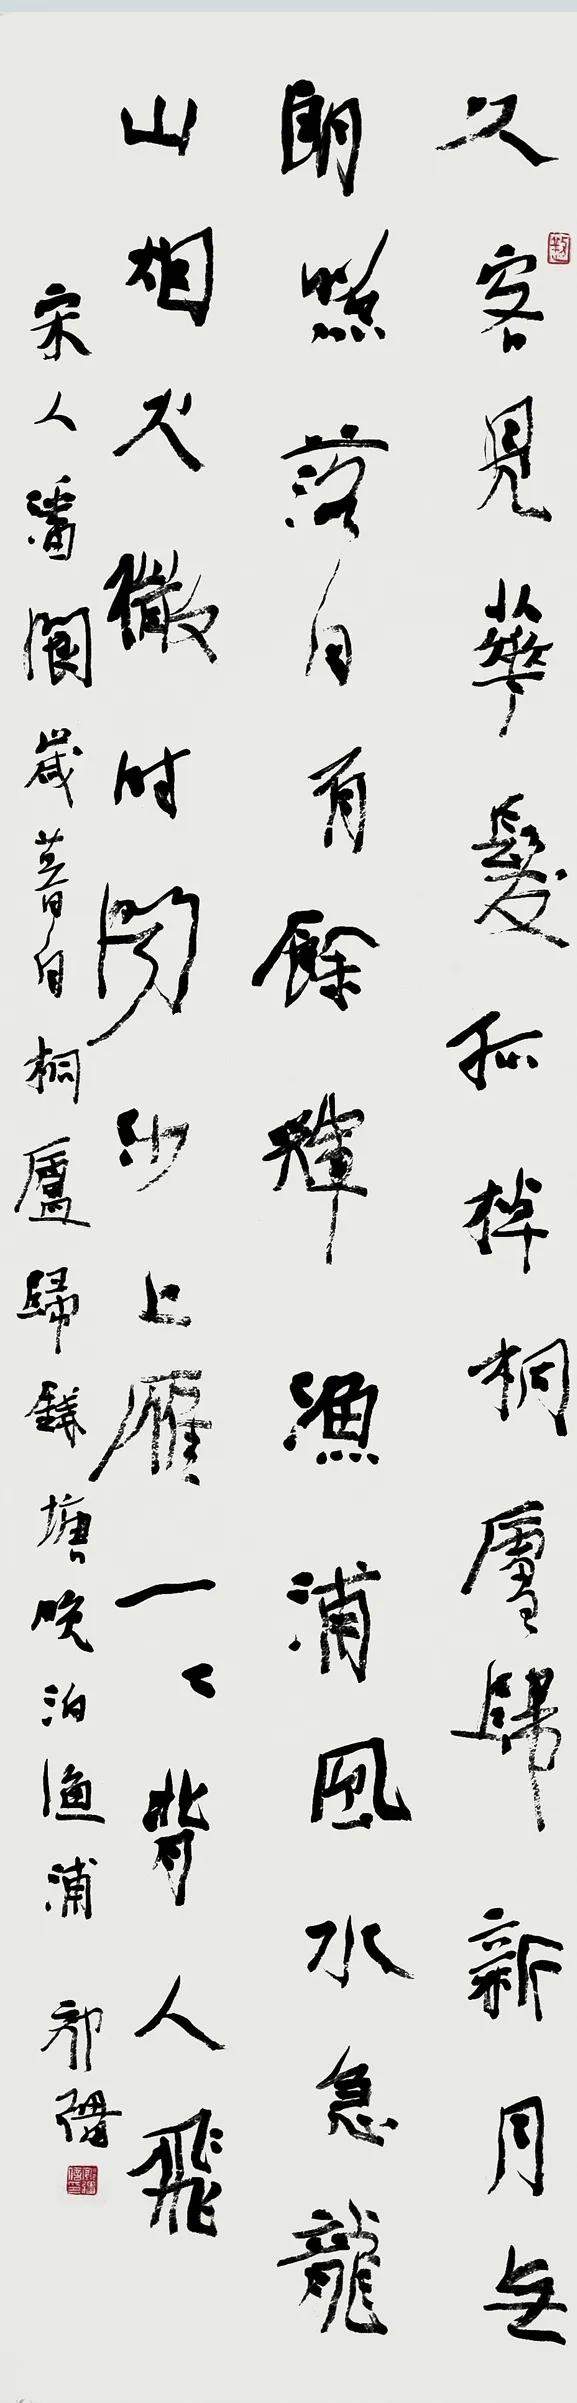 久客見華髮孤棹桐廬歸新月無
朗照落日有餘輝漁浦風水急龍
山烟火微时聞沙上雁一々背人飛
宋人潘閬歲暮自桐廬歸錢塘晚泊漁浦